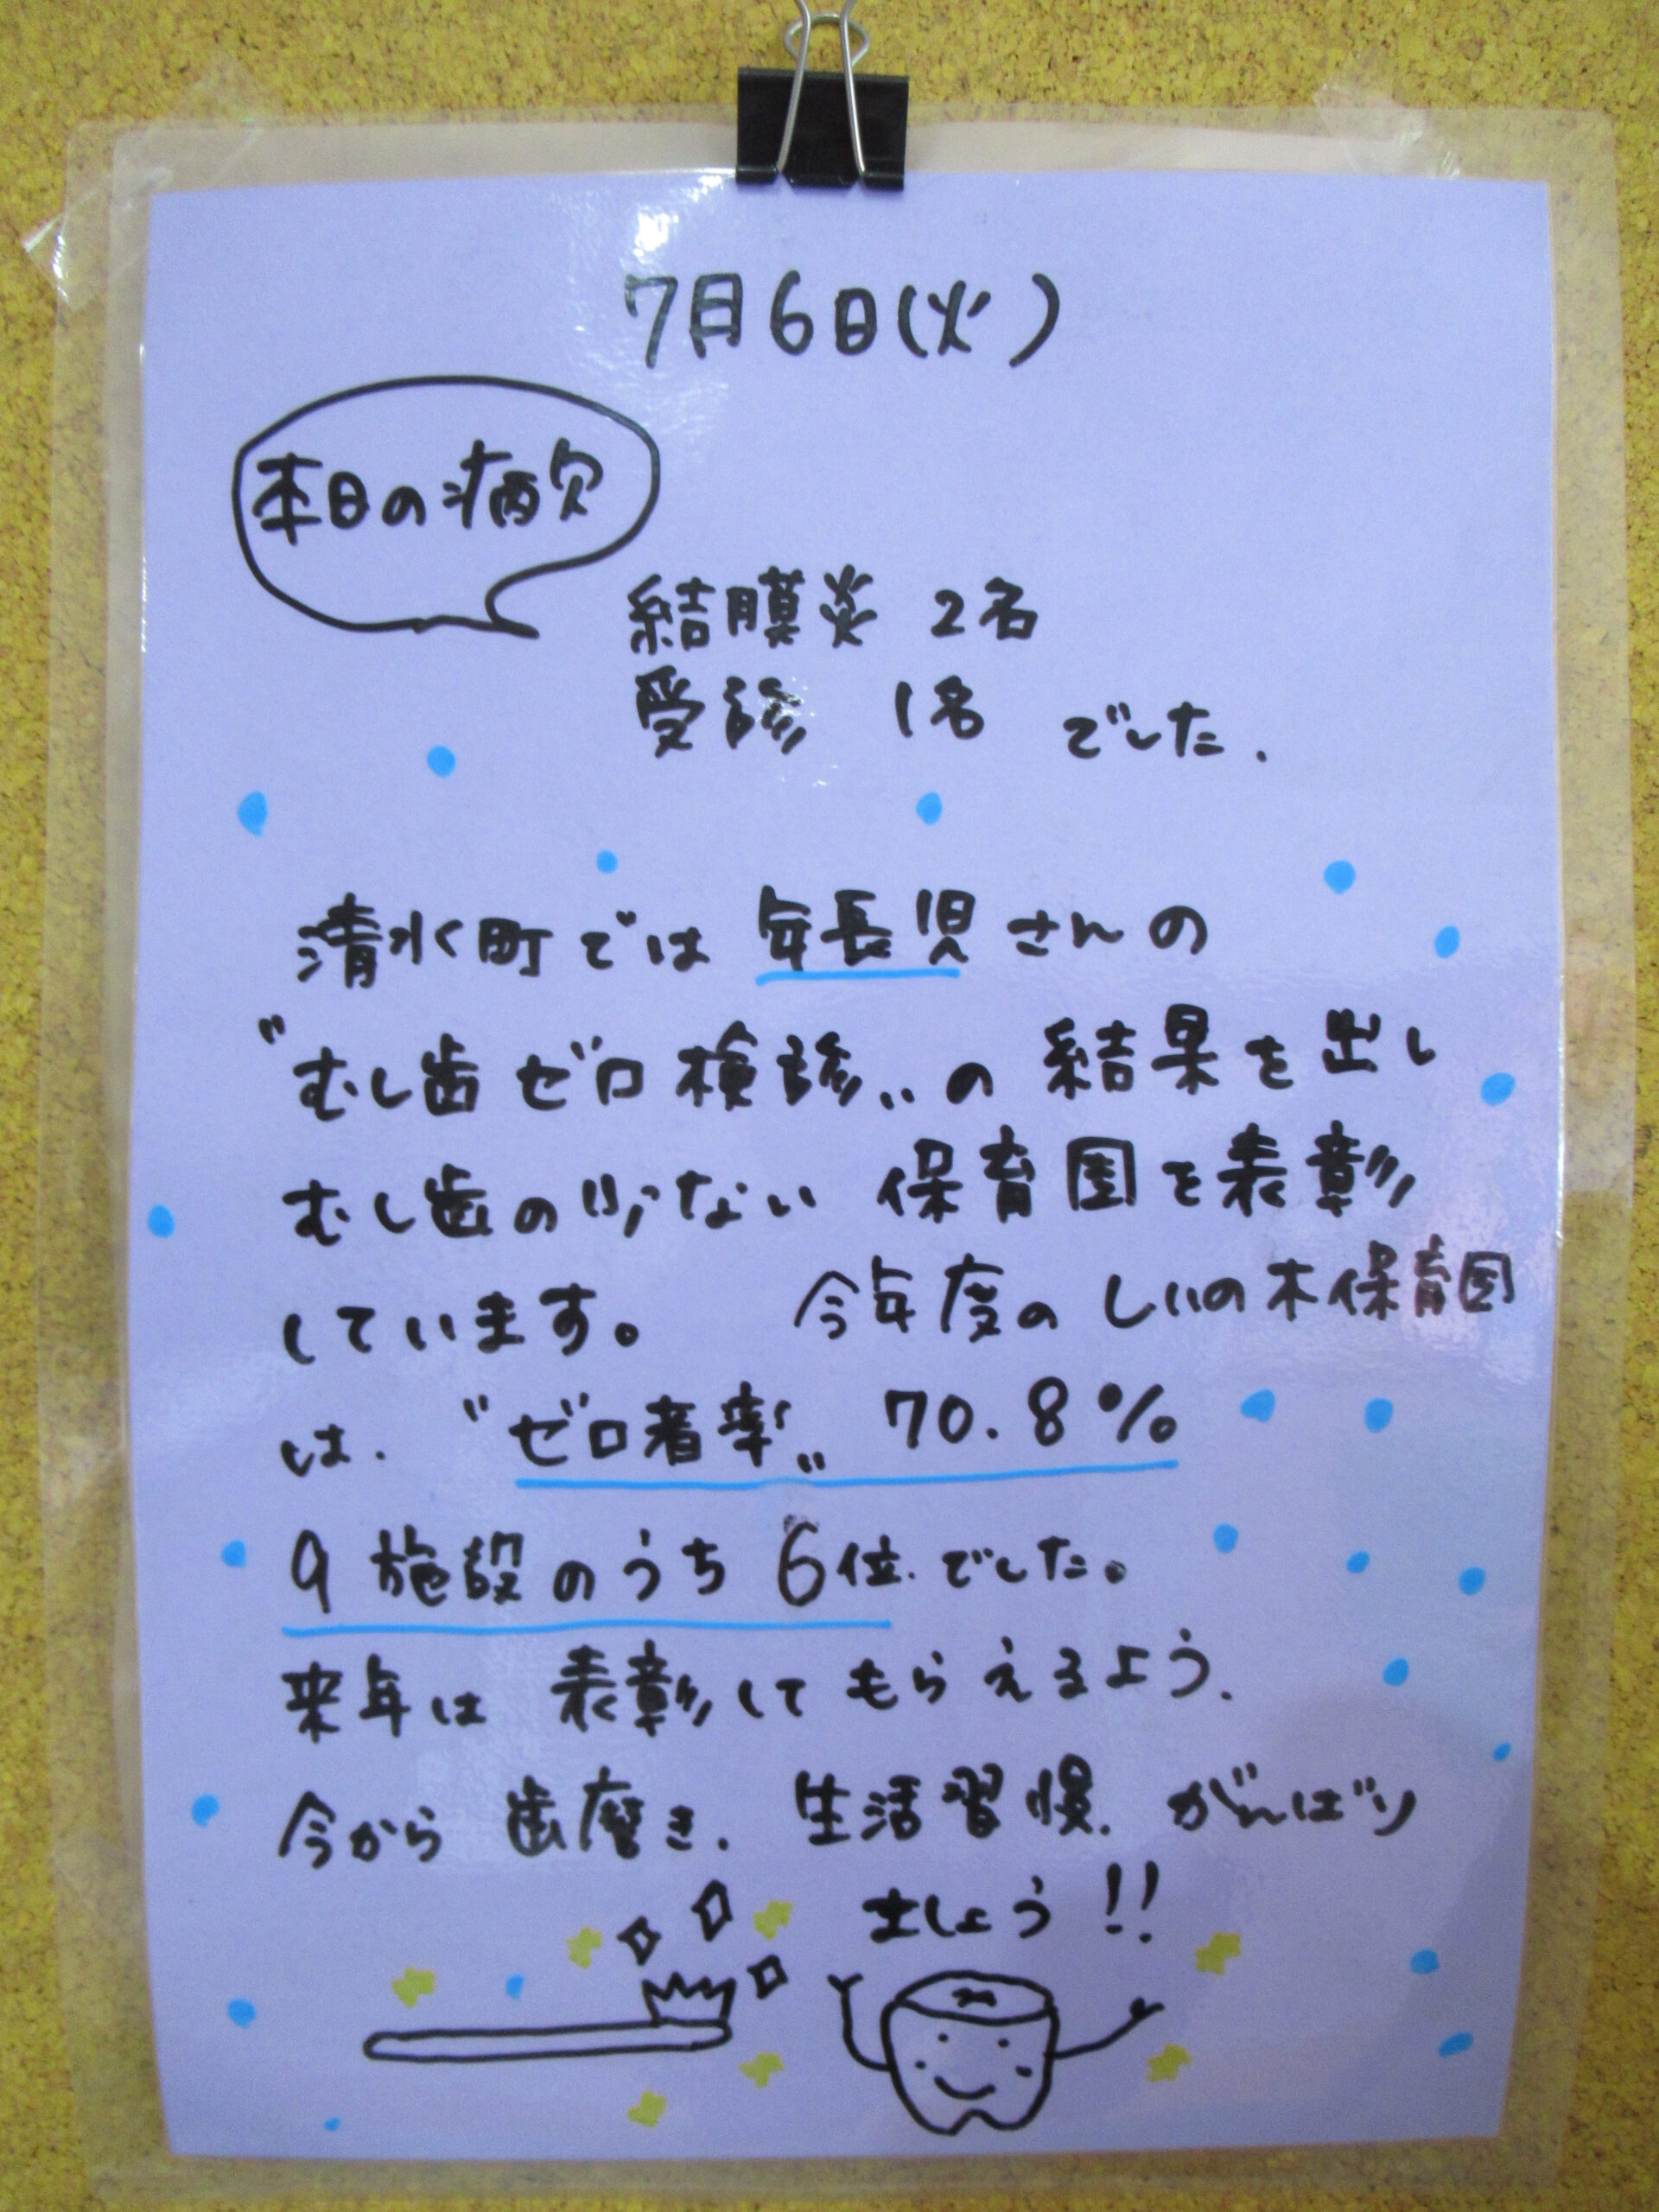 7月6日(火)
本日の病欠
結膜炎 2名
受診 1名 でした.
清水町では 年長児さんの
〝むし歯ゼロ検診〟の 結果を出し
むし歯の少ない 保育園を表彰
しています。 今年度の しいの木保育園
は. 〝ゼロ者率〟 70.8%
9施設のうち 6位.でした。
来年は 表彰してもらえるよう.
今から 歯磨き. 生活習慣. がんばり
ましょう!!